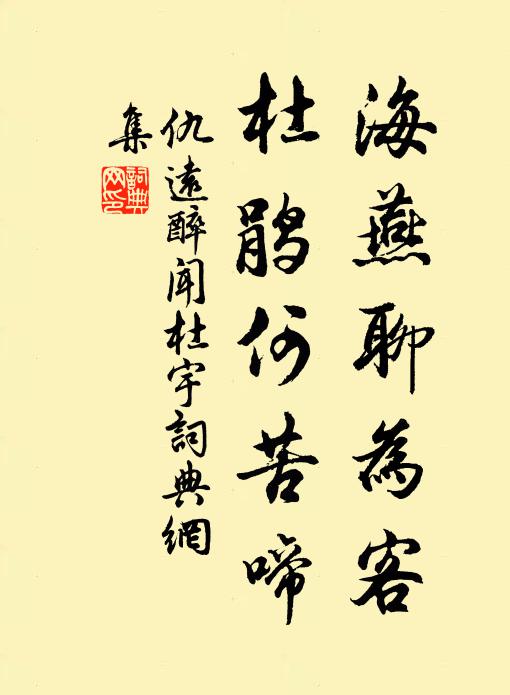 海燕聊為客
杜鹃何苦啼
仇遠醉聞杜宇詞典網
集
詞典网印